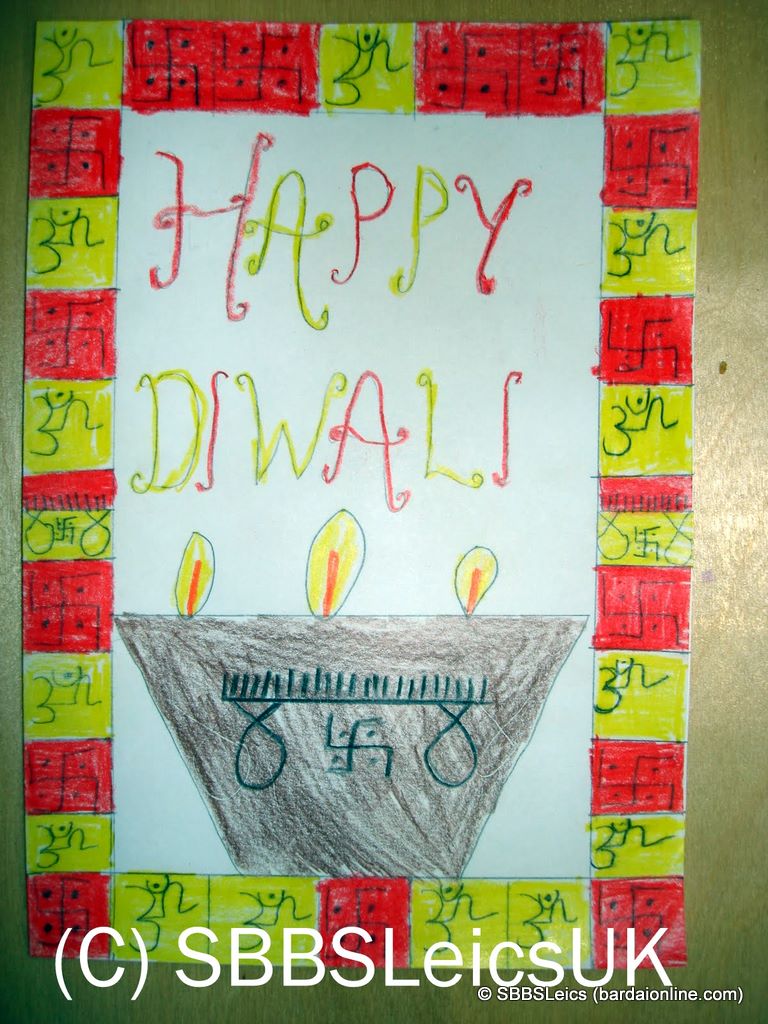 HAPPY
DIWALI
(C) SBBSLeicsUK
© SBBSLeics (bardaionline.com)